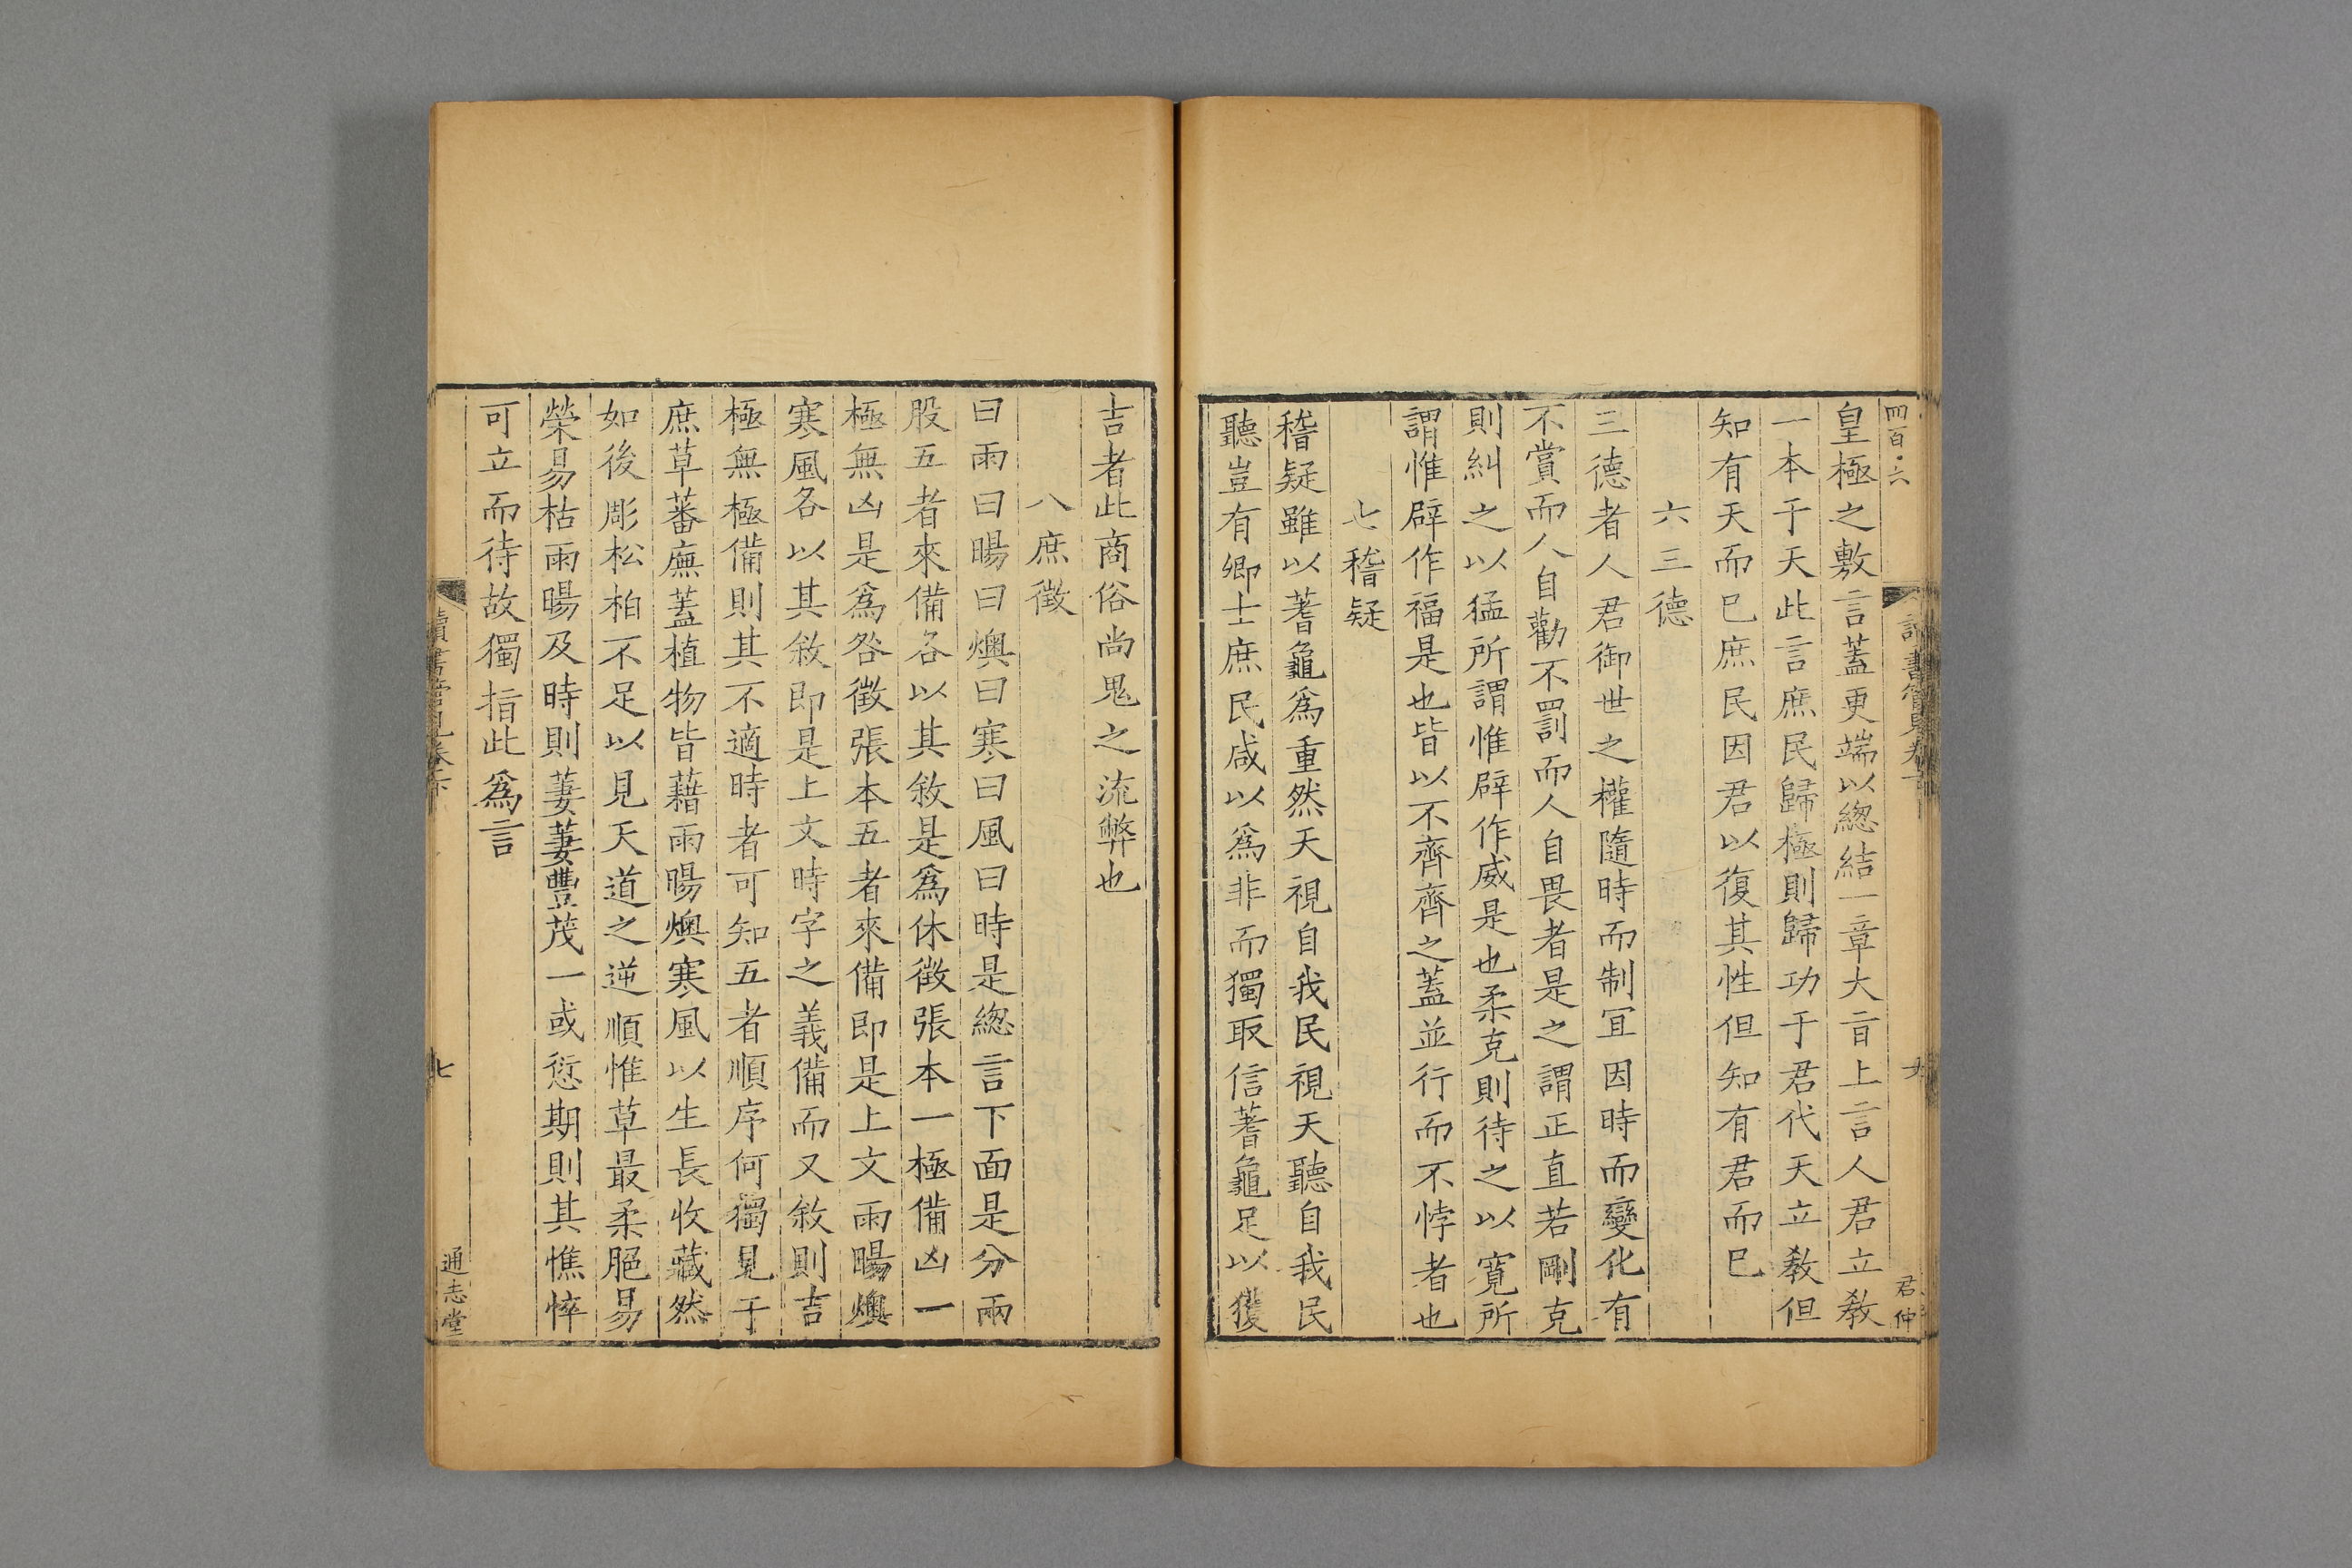 四百·六
君仲
皇極之敷言蓋更端以緫結一章大㫖上言人君立教
一本于天此言庶民歸極則歸功于君代天立教但
知有天而已庶民因君以復其性但知有君而已
六三德
三德者人君御世之權隨時而制宜因時而變化有
不賞而人自勸不罰而人自畏者是之謂正直若剛克
則糾之以猛所謂惟辟作威是也柔克則待之以寬所
謂惟辟作福是也皆以不齊齊之蓋並行而不悖者也
七稽疑
稽疑雖以蓍龜爲重然天視自我民視天聽自我民
聽豈有卿士庶民咸以爲非而獨取信蓍龜足以獲
吉者此商俗尚鬼之流弊也
八庶徵
曰雨曰暘曰燠曰寒曰風曰時是緫言下面是分兩
股五者來備各以其敘是爲休徵張本一極備凶一
極無凶是爲咎徵張本五者來備即是上文雨暘燠
寒風各以其敘即是上文時字之義備而又敘則吉
極無極備則其不適時者可知五者順序何獨見于
庶草蕃廡蓋植物皆藉雨暘燠寒風以生長收藏然
如後彫松柏不足以見天道之逆順惟草最柔脃易
榮易枯雨暘及時則萋萋豐茂一或愆期則其憔悴
可立而待故獨指此爲言
讀書管見卷下
七
通志堂